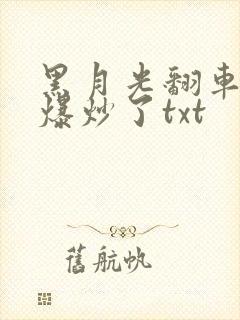 黑月光翻車
爆炒了txt
舊航帆